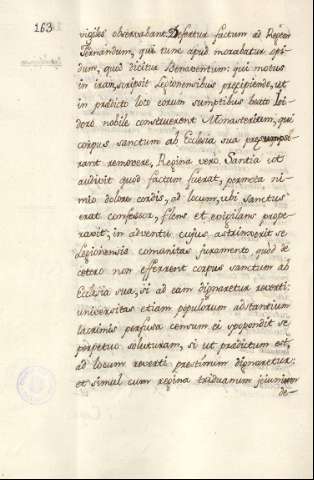 163
vigiles observabant. Defertur factum ad Regem
Fernandum, qui tunc apud morabatur opi-
dum, quod dicitur Benaventum: qui motus
in iram, scripsit Legionensibus precipiendo, ut
in prædicto loco eorum sumptibus beato Isi-
doro nobile construerent Monasterium, qui
corpus sanctum ab Ecclesia sua præsumpse-
rant removere, Regina vero Santia ut
audivit quod factum fuerat, permota ni-
mio dolore cordis, ad locum, ubi sanctus
erat confessor, flens et evigilans prope-
ravit, in adventu cujus astrinxerit se
Legionensis comunitas juramento, quod de
cetero non efferrent corpus sanctum ab
Ecclesia sua, si ad eam dignaretur reverti:
universitas etiam populorum adstantium
lacrimis perfusa censum ei spopondit se
perpetuo soluturam, si ut prædictum est,
ad locum reverti prestinum dignaretur:
et simul cum regina triduanum jejunium
de-